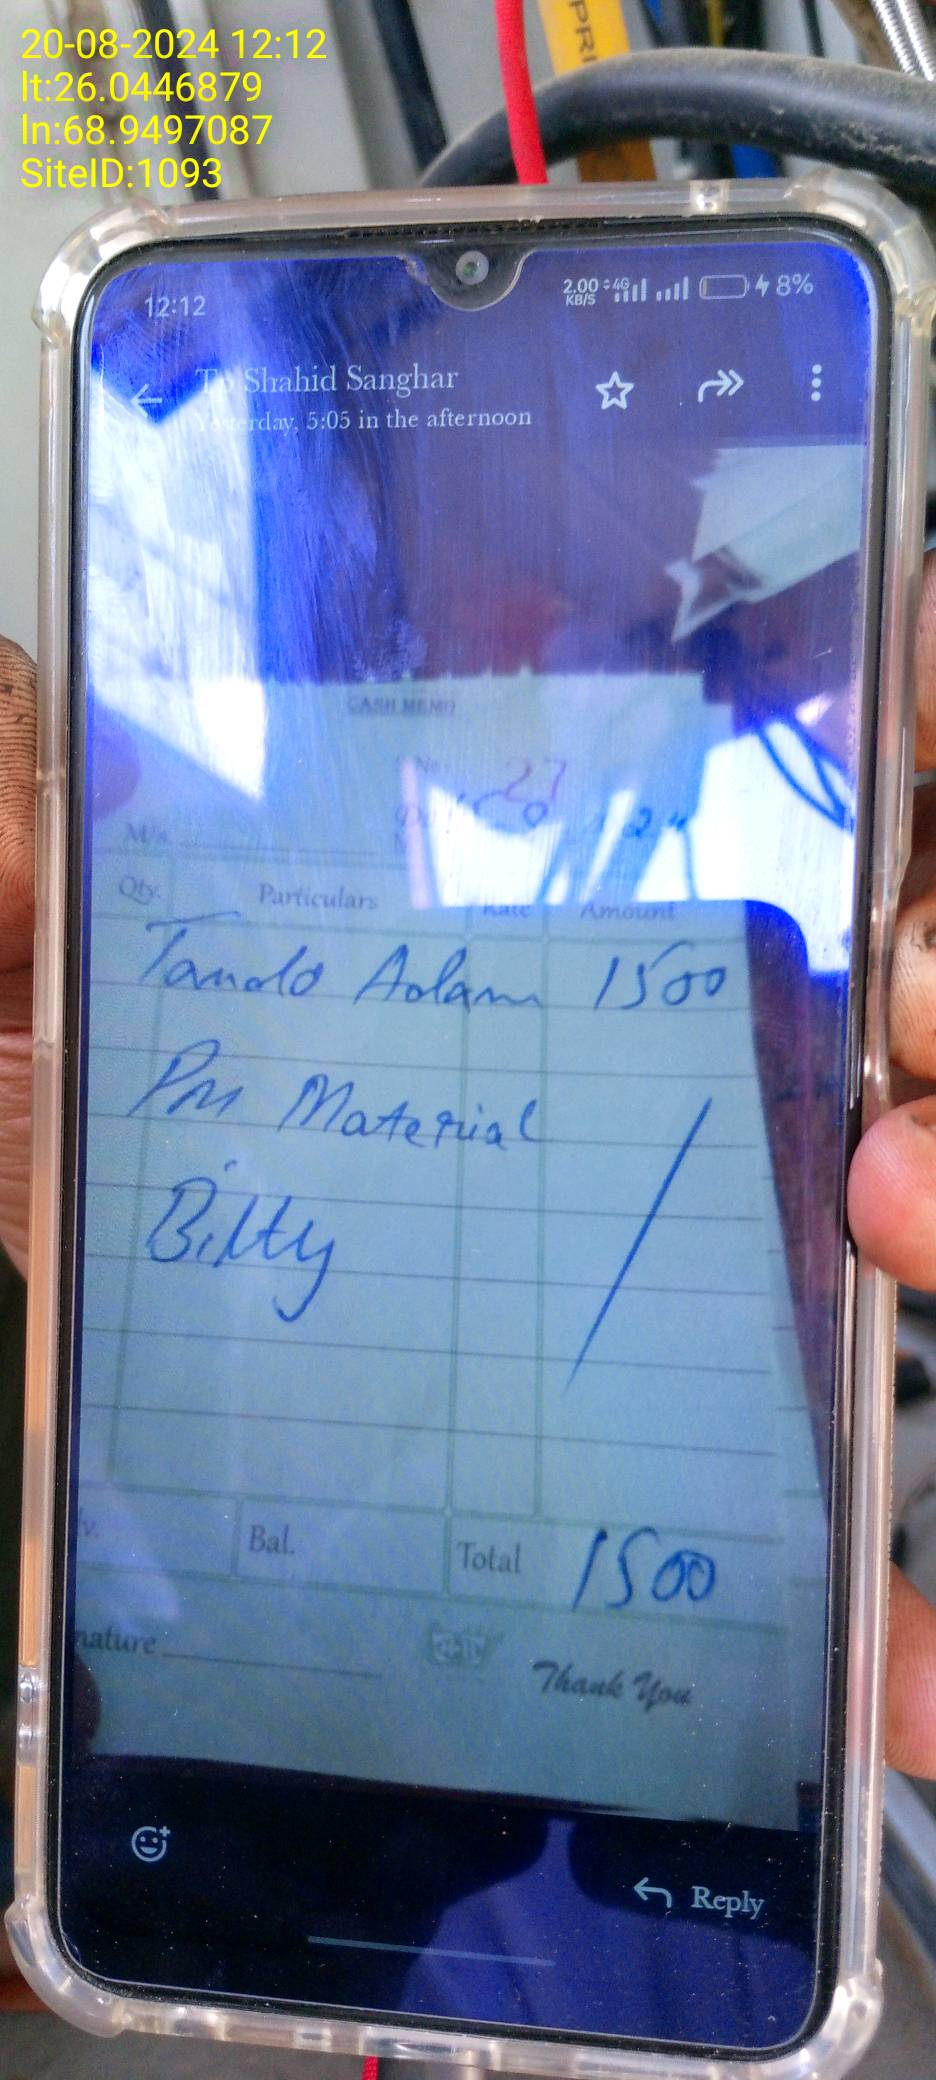 20-08-2024 12:12
lt:26.0446879
ln:68.9497087
SiteID:1093
12:12
2.00 KB/S 4G 8%
Tp Shahid Sanghar
Yesterday, 5:05 in the afternoon
CASH MEMO
27
M/s
Qty. Particulars Rate Amount
Tando Adam 1500
PM Material
Bilty
Bal. Total 1500
nature
Thank You
Reply